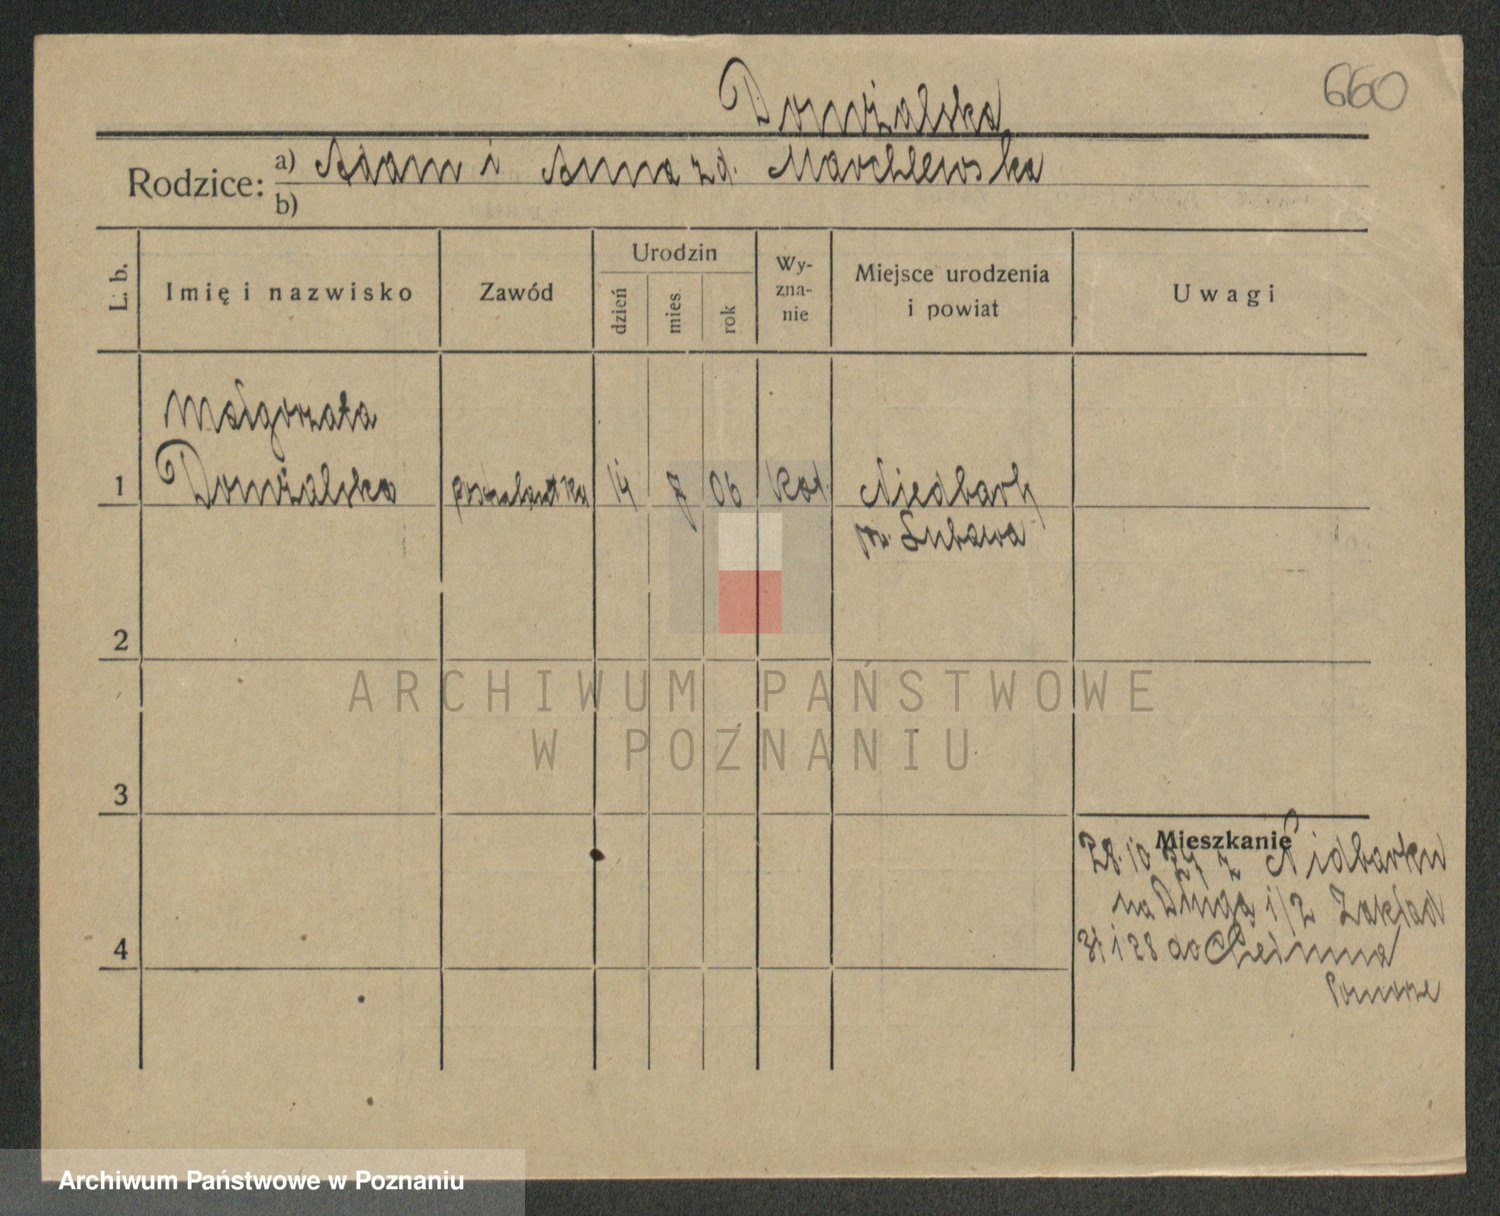 660
Domżalska
Rodzice: a) Adam i Anna zd. Marchlewska
b)
L. b.
Imię i nazwisko
Zawód
Urodzin
dzień
mies.
rok
Wy-
zna-
nie
Miejsce urodzenia
i powiat
Uwagi
Małgorzata
1 Domżalska postulantka 14 7 06 kat. Niedbark
pow. Lubawa
2
3
4
Mieszkanie
28.10 27 z Nidbarku
na Długą 1/2 Zakład
31 1 28 do Chełmna
Pomorze
ARCHIWUM PAŃSTWOWE
W POZNANIU
Archiwum Państwowe w Poznaniu